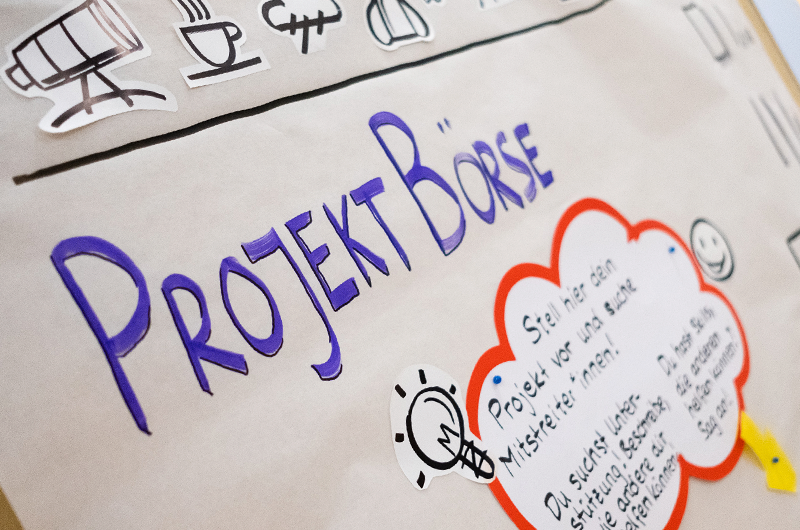 PROJEKT BÖRSE
Stell hier dein
Projekt vor und suche
Mitstreiter*innen!
Du suchst Unter-
stützung? Beschreibe
wie andere dir
helfen können!
Du hast Skills,
die anderen
helfen können?
Sag an!